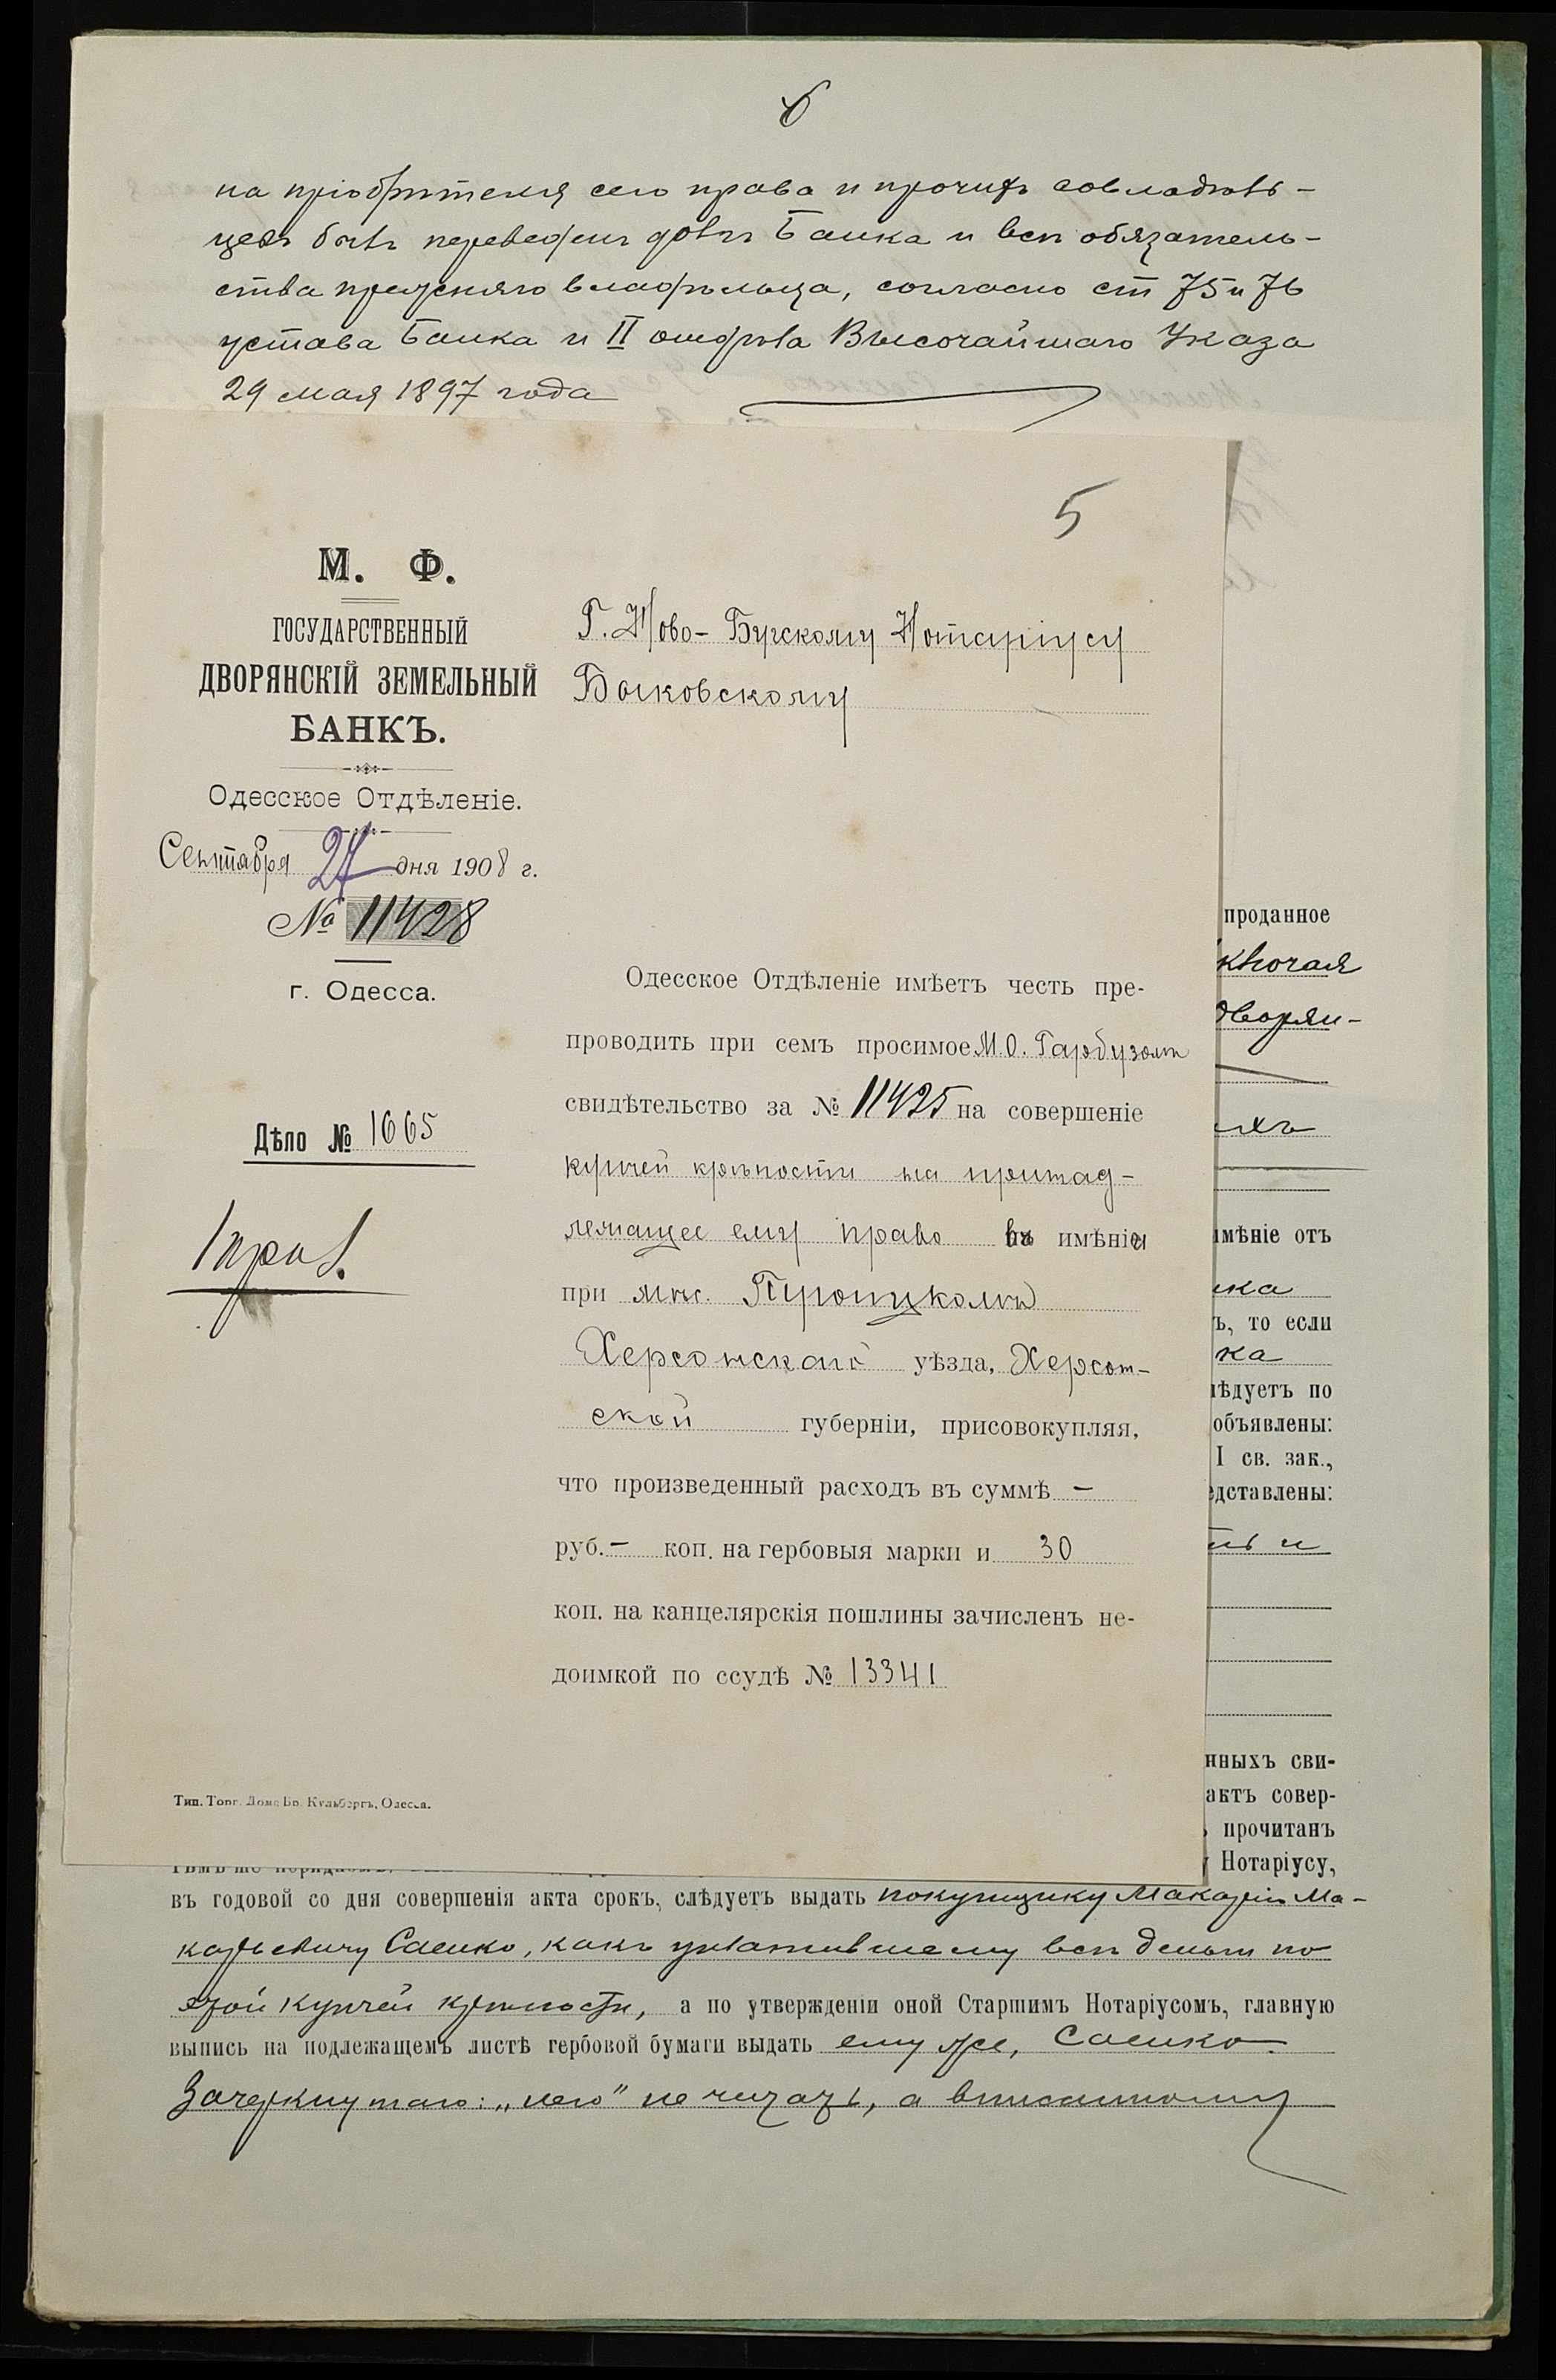 6
на пріобрѣтеля сего права и прочихъ совладѣль-
цевъ былъ переведенъ долгъ Банка и всѣ обязатель-
ства прежняго владѣльца, согласно ст 75 и 76
устава Банка и II отдѣла Высочайшаго Указа
29 мая 1897 года
5
М. Ф.
ГОСУДАРСТВЕННЫЙ
ДВОРЯНСКІЙ ЗЕМЕЛЬНЫЙ
БАНКЪ.
Одесское Отдѣленіе.
Сентября 24 дня 1908 г.
№ 11428
г. Одесса.
Дѣло № 1665
Г. Ново-Бугскому Нотаріусу
Быковскому
Одесское Отдѣленіе имѣетъ честь пре-
проводить при семъ просимое М.О. Гарбузомъ
свидѣтельство за № 11425 на совершеніе
купчей крѣпости на принад-
лежащее ему право въ имѣніи
при мѣст.
Херсонскаго уѣзда, Херсон-
ской губерніи, присовокупляя,
что произведенный расходъ въ суммѣ —
руб. — коп. на гербовыя марки и 30
коп. на канцелярскія пошлины зачисленъ не-
доимкой по ссудѣ № 13341
Тип. Торг. Дома Бр. Кульбергъ, Одесса.
проданное
ключая
дворян-
ихъ
имѣніе отъ
нка
ъ, то если
ка
лѣдуетъ по
объявлены:
I св. зак.,
едставлены:
ть и
нныхъ сви-
актъ совер-
прочитанъ
Нотаріусу,
въ годовой со дня совершенія акта срокъ, слѣдуетъ выдать покупщику Макарію Ма-
карьевичу Саенко, какъ уплатившему всѣ деньги по
этой купчей крѣпости, а по утвержденіи оной Старшимъ Нотаріусомъ, главную
выпись на подлежащемъ листѣ гербовой бумаги выдать ему же, Саенко.
Зачеркнутаго: „него" не читать, а вписанному